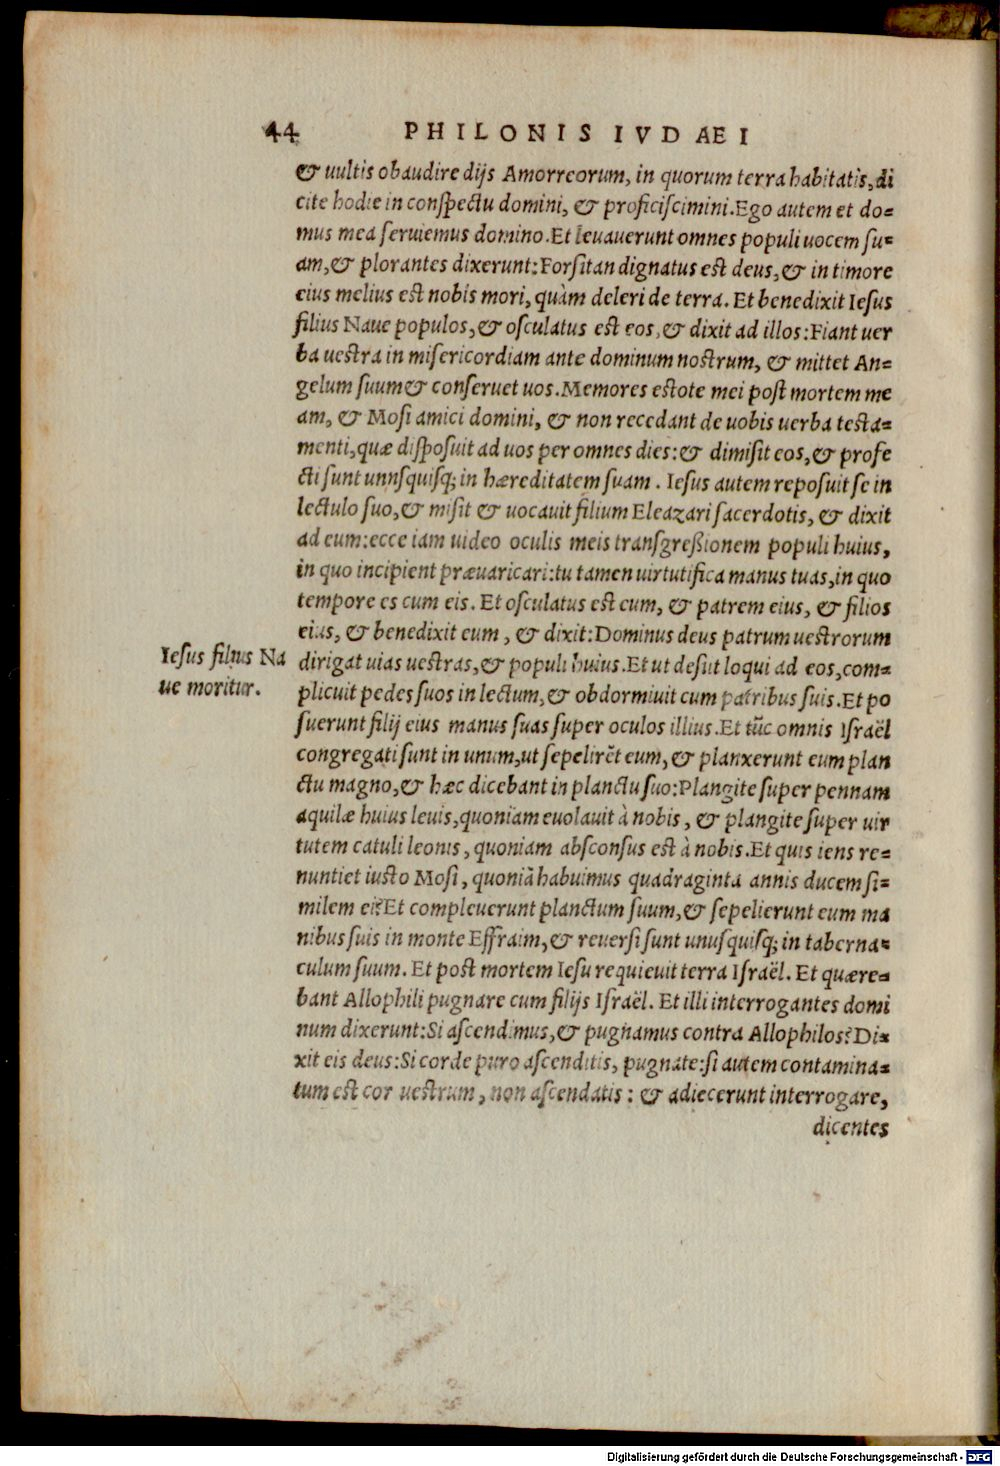 44 PHILONIS IVDAEI
& uultis obaudire dijs Amorreorum, in quorum terra habitatis, di
cite hodie in conspectu domini, & proficiscimini. Ego autem et do=
mus mea seruiemus domino. Et leuauerunt omnes populi uocem su=
am, & plorantes dixerunt: Forsitan dignatus est deus, & in timore
eius melius est nobis mori, quàm deleri de terra. Et benedixit Iesus
filius Naue populos, & osculatus est eos, & dixit ad illos: Fiant uer
ba uestra in misericordiam ante dominum nostrum, & mittet An=
gelum suum & conseruet uos. Memores estote mei post mortem me
am, & Mosi amici domini, & non recedant de uobis uerba testa=
menti, quæ disposuit ad uos per omnes dies: & dimisit eos, & profe
cti sunt unusquisq; in hæreditatem suam. Iesus autem reposuit se in
lectulo suo, & misit & uocauit filium Eleazari sacerdotis, & dixit
ad eum: ecce iam uideo oculis meis transgreßionem populi huius,
in quo incipient præuaricari: tu tamen uirtutifica manus tuas, in quo
tempore es cum eis. Et osculatus est eum, & patrem eius, & filios
eius, & benedixit eum, & dixit: Dominus deus patrum uestrorum
Iesus filius Na
ue moritur.
dirigat uias uestras, & populi huius. Et ut desijt loqui ad eos, com=
plicuit pedes suos in lectum, & obdormiuit cum patribus suis. Et po
suerunt filij eius manus suas super oculos illius. Et tũc omnis Israël
congregati sunt in unum, ut sepelirẽt eum, & planxerunt eum plan
ctu magno, & hæc dicebant in planctu suo: Plangite super pennam
aquilæ huius leuis, quoniam euolauit à nobis, & plangite super uir
tutem catuli leonis, quoniam absconsus est à nobis. Et quis iens re=
nuntiet iusto Mosi, quoniã habuimus quadraginta annis ducem si=
milem ei? Et compleuerunt planctum suum, & sepelierunt eum ma
nibus suis in monte Effraim, & reuersi sunt unusquisq; in taberna=
culum suum. Et post mortem Iesu requieuit terra Israël. Et quære=
bant Allophili pugnare cum filijs Israël. Et illi interrogantes domi
num dixerunt: Si ascendimus, & pugnamus contra Allophilos? Di=
xit eis deus: Si corde puro ascenditis, pugnate: si autem contamina=
tum est cor uestrum, non ascendatis: & adiecerunt interrogare,
dicentes
Digitalisierung gefördert durch die Deutsche Forschungsgemeinschaft - DFG